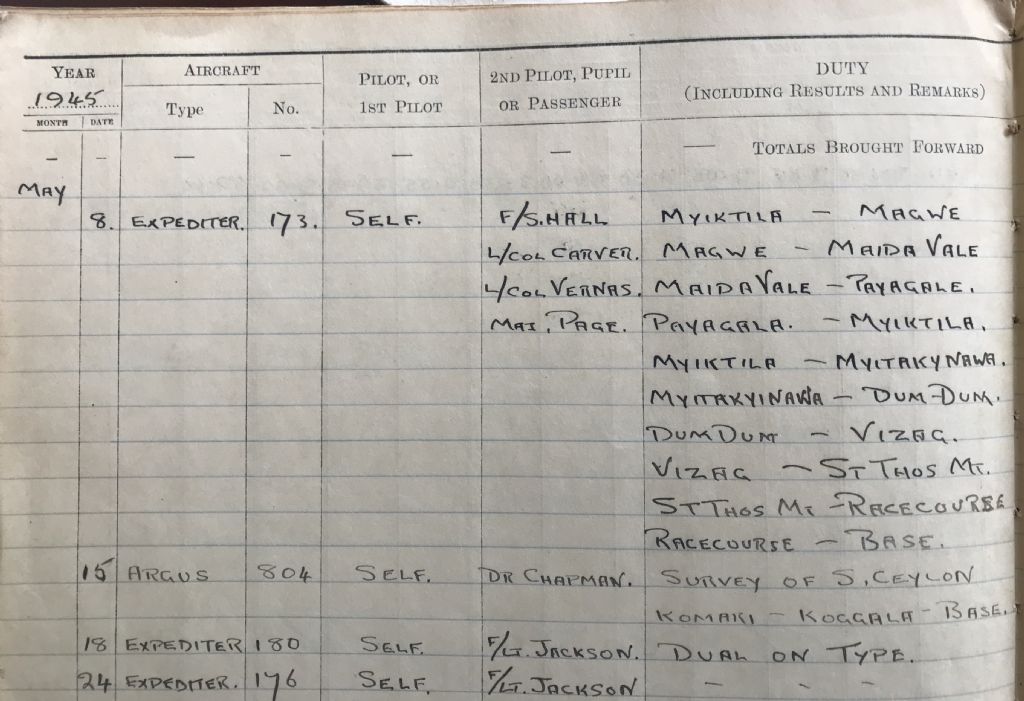 YEAR AIRCRAFT PILOT, OR 2ND PILOT, PUPIL DUTY
1945 Type No. 1ST PILOT OR PASSENGER (INCLUDING RESULTS AND REMARKS)
MONTH DATE
— — — — — — — TOTALS BROUGHT FORWARD
MAY
8. EXPEDITER. 173. SELF. F/S. HALL MYIKTILA — MAGWE
L/COL CARVER. MAGWE — MAIDA VALE
L/COL VERNAS. MAIDA VALE — PAYAGALE.
MAJ. PAGE. PAYAGALA. — MYIKTILA.
MYIKTILA — MYITAKYNAWA.
MYITAKYINAWA — DUM-DUM.
DUM DUM — VIZAG.
VIZAG — ST THOS MT.
ST THOS MT — RACECOURSE
RACECOURSE — BASE.
15 ARGUS 804 SELF. DR CHAPMAN. SURVEY OF S. CEYLON
KOMARI — KOGGALA — BASE.
18 EXPEDITER 180 SELF. F/LT. JACKSON. DUAL ON TYPE.
24 EXPEDITER. 176 SELF. F/LT. JACKSON — — —